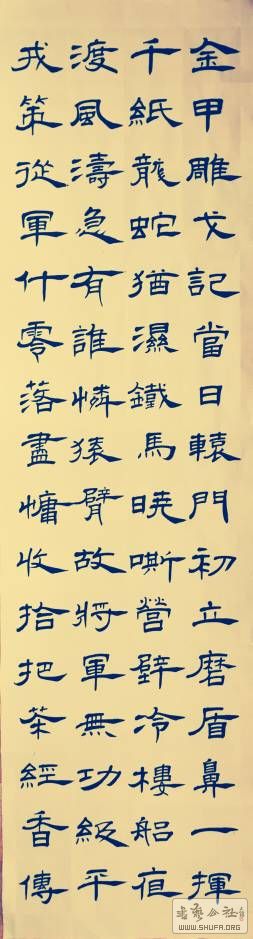 金甲雕戈記當日轅門初立磨盾鼻一揮
千紙龍蛇猶濕鐵馬曉嘶營壁冷樓船夜
渡風濤急有誰憐猿臂故將軍無功級平
戎策從軍什零落盡慵收拾把茶經香傳
书艺公社
WWW.SHUFA.ORG